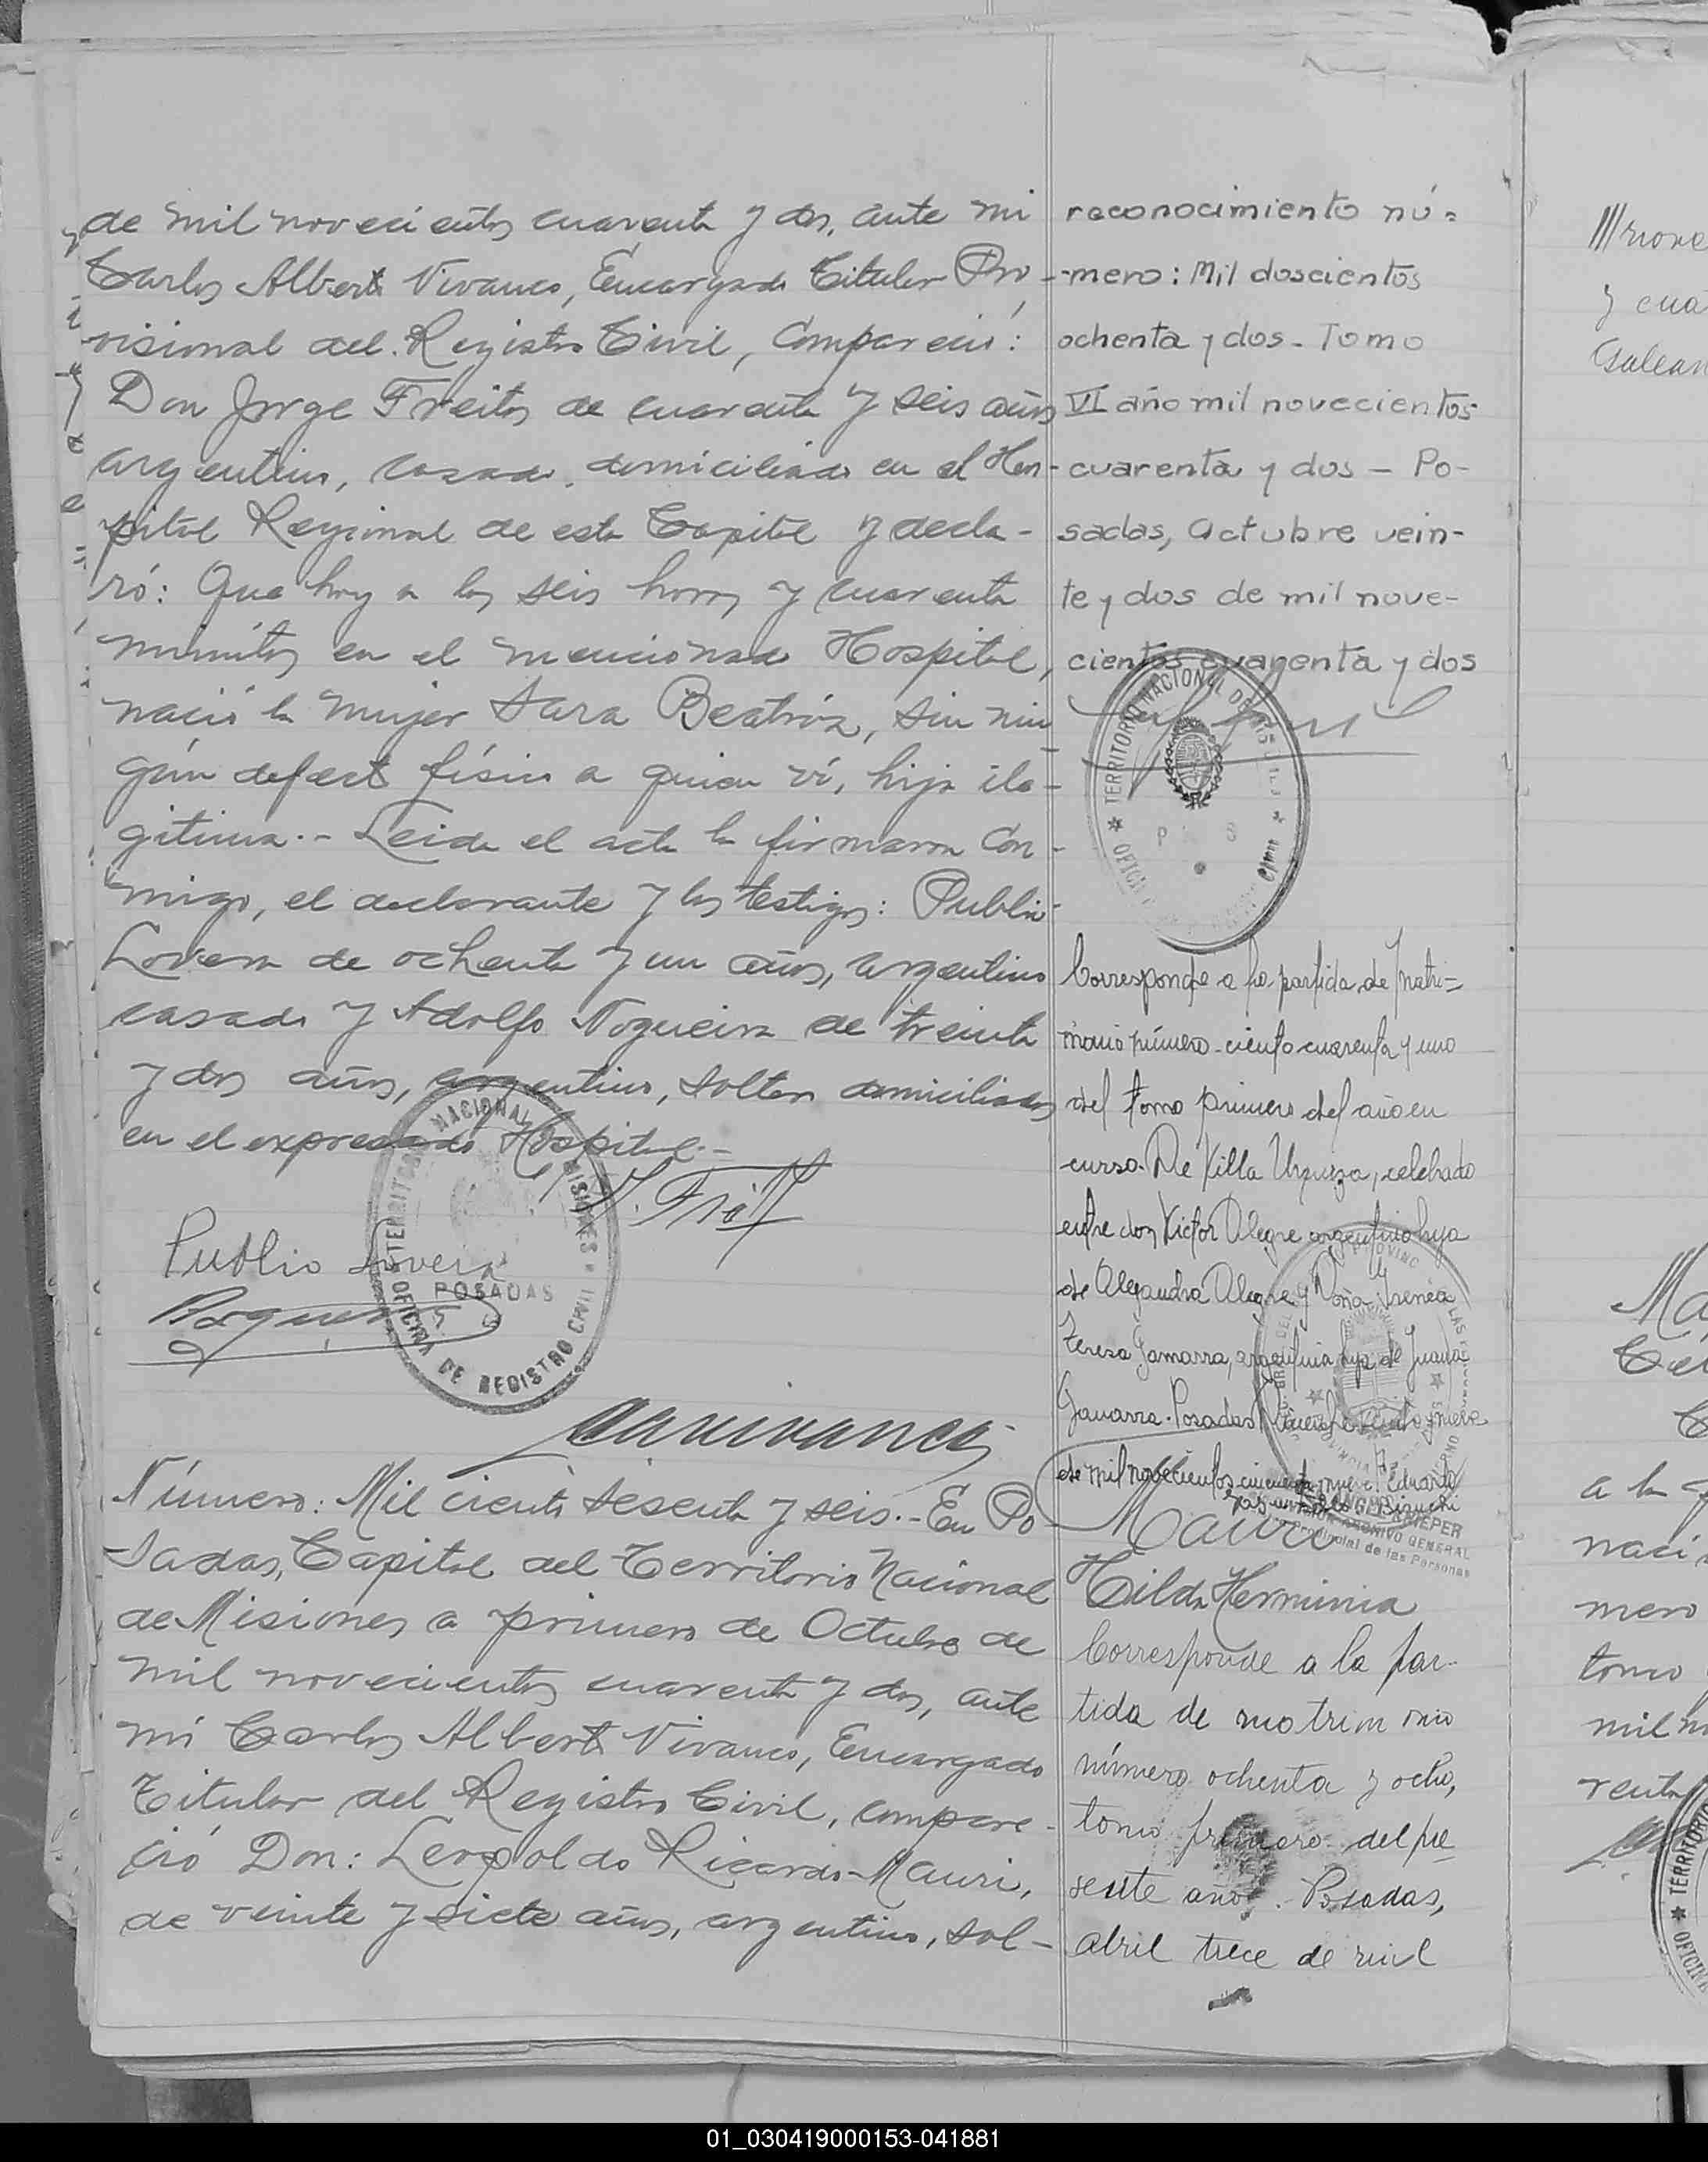 de mil novecientos cuarenta y dos, ante mi
Carlos Alberto Vivanco, Encargado Titular Pro-
visional del Registro Civil, Compareció:
Don Jorge Freitas de cuarenta y seis años
argentino, casado, domiciliado en el Hos-
pital Regional de esta Capital y decla-
ró: Que hoy a las seis horas y cuarenta
minutos en el mencionado Hospital,
nació la mujer Sara Beatríz, sin nin-
gún defecto físico a quien ví, hija ile-
gitima.- Leida el acta la firmaron con-
migo, el declarante y los testigos: Publio
Lovera de ochenta y un años, argentino
casado y Adolfo Nogueira de treinta
y dos años, argentino, soltero domiciliados
en el expresado Hospital.-
Publio Lovera
TERRITORIO NACIONAL MISIONES
POSADAS
OFICINA DE REGISTRO CIVIL
Número: Mil ciento sesenta y seis.- En Po-
sadas, Capital del Territorio Nacional
de Misiones a primero de Octubre de
mil novecientos cuarenta y dos, ante
mi Carlos Alberto Vivanco, Encargado
Titular del Registro Civil, compare-
ció Don: Leopoldo Ricardo Mauri,
de veinte y siete años, argentino, sol-
reconocimiento nú=
-mero: Mil doscientos
ochenta y dos - Tomo
VI año mil novecientos
cuarenta y dos - Po-
sadas, Octubre vein-
te y dos de mil nove-
cientos cuarenta y dos
TERRITORIO NACIONAL DE MISIONES
Corresponde a la partida de matri=
monio número ciento cuarenta y uno
del tomo primero del año en
curso. De Villa Urquiza, celebrado
entre don Victor Alegre argentino hijo
de Alejandra Alegre y Doña Irenea
Tereza Gamarra, argentina hija de Juana
Gamarra. Posadas
de mil novecientos cincuenta y nueve. Eduardo
ARCHIVO GENERAL
Provincial de las Personas
Mauri
Hilda Herminia
Corresponde a la par-
tida de matrimonio
número ochenta y ocho,
tomo primero del pre
sente año. Posadas,
abril trece de mil
y cua
a la
naci
mero
tomo
mil n
renta
TERRITORIO
01_030419000153-041881